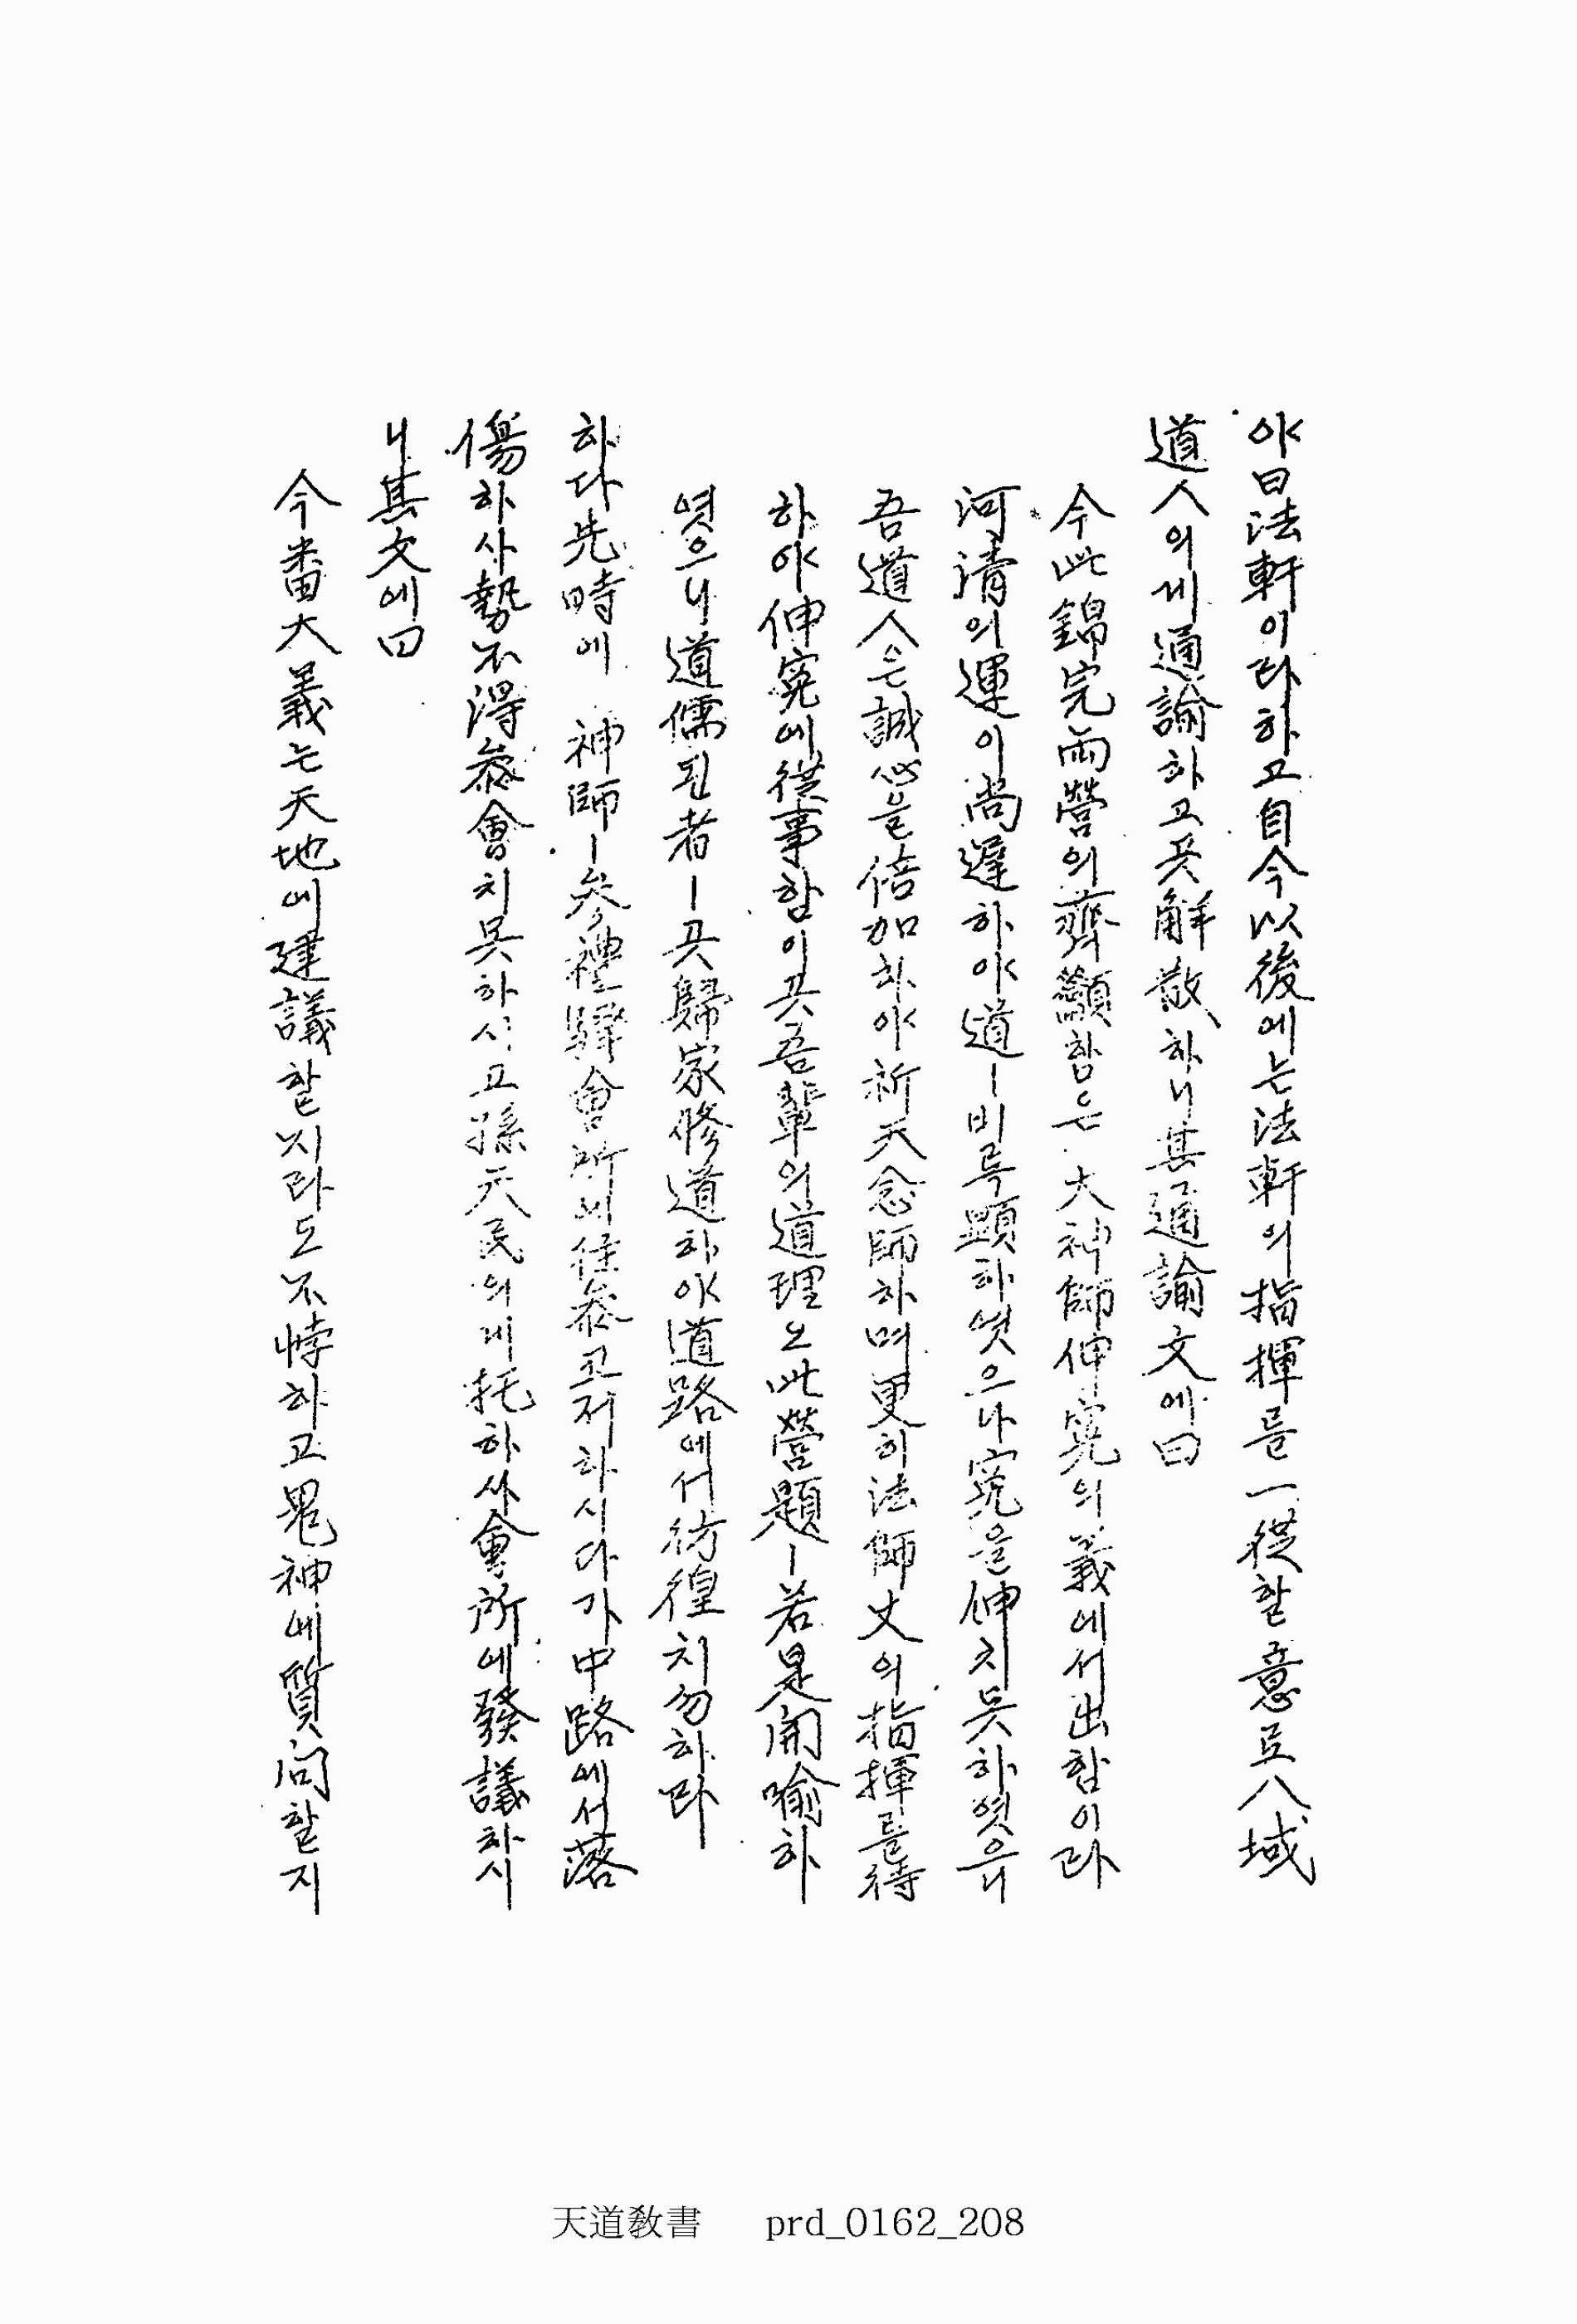 야曰法軒이라하고自今以後에는法軒의指揮를一從할意로八域
道人의게通諭하고곳解散하니其通諭文에曰
今此錦完兩營의齊籲함은大神師伸寃의義에서出함이라
河淸의運이尙遲하야道ㅣ비록顯하엿으나寃을伸치못하엿으니
吾道人은誠心을倍加하야祈天念師하며更히法師丈의指揮를待
하야伸寃에從事함이곳吾輩의道理오此營題ㅣ若是開喩하
엿으니道儒된者ㅣ곳歸家修道하야道路에서彷徨치勿하라
하다先時에 神師ㅣ參禮驛會所에往參고저하시다가中路에서落
傷하사勢不得參會치못하시고孫天民의게托하사會所에發議하시
니其文에曰
今番大義는天地에建議할지라도不悖하고鬼神에質問할지
天道敎書 prd_0162_208